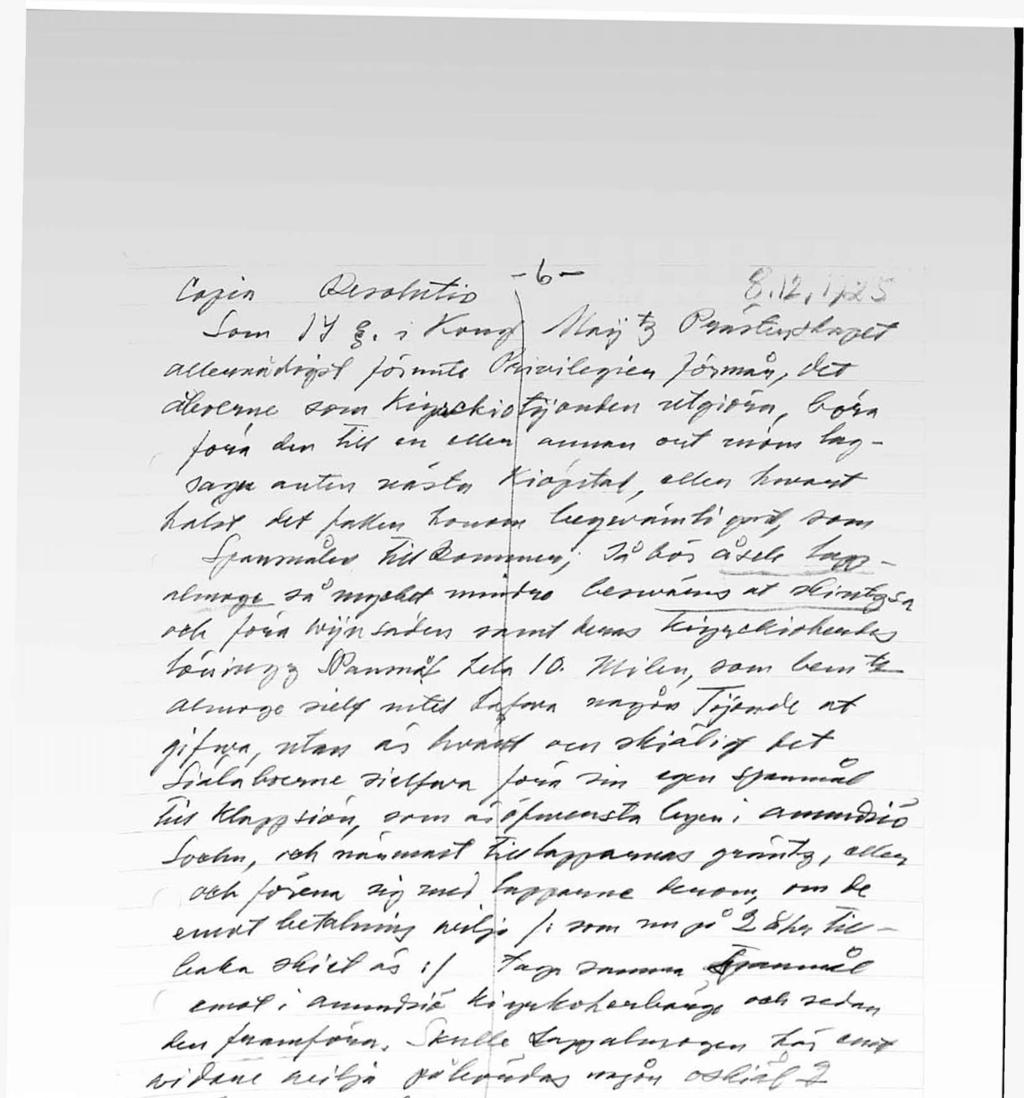 -6-
Copia Resolutio 8.12.1725
Som 14 §. i Kongl Maij tz Prästerskapet
allernådigst förunte Privilegier förmår, det
åboerne som kiyrckiotijonden utgiöra, böra
föra den till en eller annan ort inom lag-
sagu anten nästa Kiöpstad, eller hwart
hälst det faller honom beqwämligast, som
Spanmålen tillkommer; Så bör åsele lapp-
almoge så mycket mindre beswäras at skiutzsa
och föra wijnsäden samt deras kiyrckioherdes
löningz Spanmål hela 10. Milar, som bem te
almoge sielf intet hafwa någon Tijonde at
gifwa, utan är hwart och skiäligt det
Siälaboerne sielfwa föra sin egen spanmål
till Klappsiön, som är öfwersta byen i anundsiö
Sochn, och närmast till lapparnas gräntz, eller
och förena sig med lapparne derom, om de
emot betalning wilja /: som nu på 2 åhr till-
baka skiet är :/ taga samma Spanmål
emot i anundsiö kiyrkoherberge och sedan
den framföra. Skulle Lappalmogen här emot
widare wilja påbördas någon oskiäl